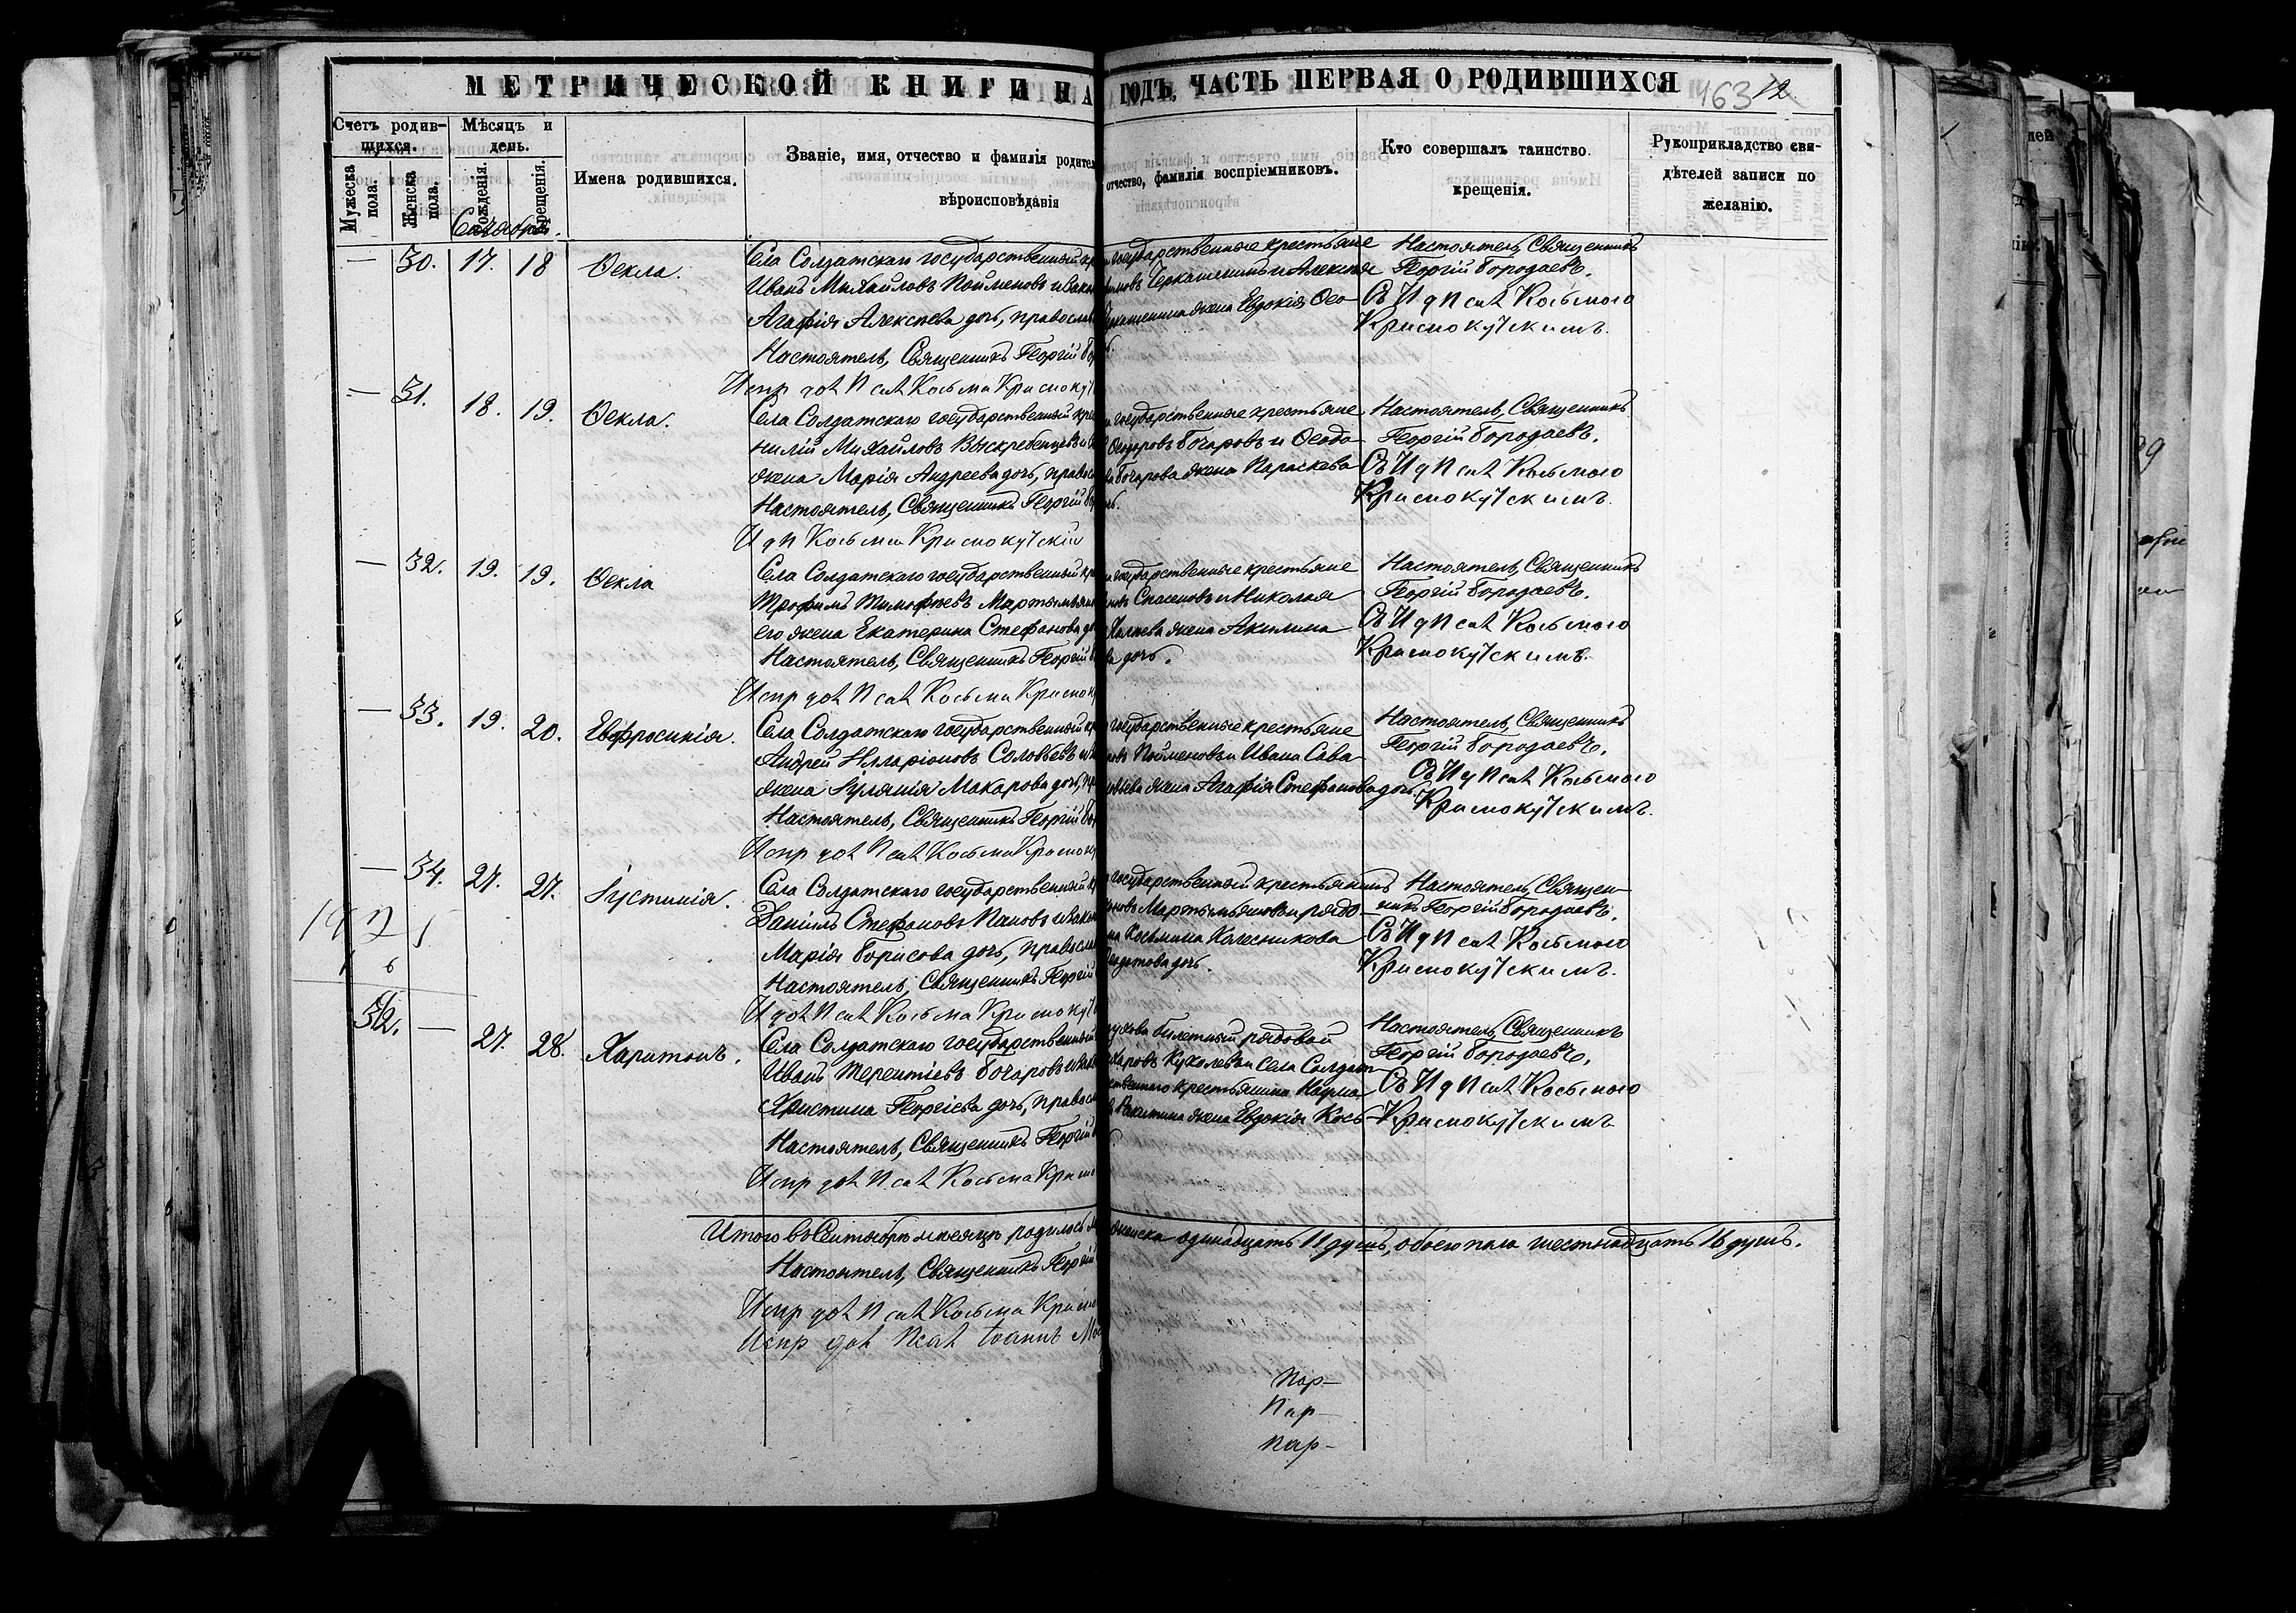 МЕТРИЧЕСКОЙ КНИГИ НА ГОДЪ, ЧАСТЬ ПЕРВАЯ О РОДИВШИХСЯ
463 12
Счетъ родив-
шихся.
Мужеска пола.
Женска пола.
Мѣсяцъ и
день.
рожденія.
крещенія.
Имена родившихся.
Званіе, имя, отчество и фамилія родител
вѣроисповѣданія
отчество, фамилія воспріемниковъ.
Кто совершалъ таинство
крещенія.
Рукоприкладство сви-
дѣтелей записи по
желанію.
Сентябрь.
— 30. 17. 18 Ѳекла.
Села Солдатскаго государственный кр
Иванъ Михайловъ Пойменовъ и зако
Агафія Алексѣева дочь, православ
Настоятель, Священникъ Георгій Бо
Испр дол Псал Косьма Краснокут
государственные крестьяне
Черкашинъ и Алексѣя
жена Евдокія Ѳео-
Настоятель, Священникъ
Георгій Бородаевъ.
Съ И д Псал Косьмою
Краснокутскимъ.
— 31. 18. 19. Ѳекла.
Села Солдатскаго государственный кре
нилій Михайловъ Выскребенцевъ и
жена Марія Андреева дочь, правос
Настоятель, Священникъ Георгій Бо
И д П Косьма Краснокутскій
государственные крестьяне
Ѳеодоровъ Бочаровъ и Ѳеодо-
Бочарова жена Параскева
Настоятель, Священникъ
Георгій Бородаевъ.
Съ И д Псал Косьмою
Краснокутскимъ.
— 32. 19. 19. Ѳекла
Села Солдатскаго государственный кр
Трофимъ Тимофѣевъ Мартемьян
его жена Екатерина Стефанова до
Настоятель, Священникъ Георгій Б
Испр дол Псал Косьма Красно
государственные крестьяне
Спасеновъ и Николая
жена Акилина
дочь.
Настоятель, Священникъ
Георгій Бородаевъ.
Съ И д Псал Косьмою
Краснокутскимъ.
— 33. 19. 20. Евфросинія.
Села Солдатскаго государственный кр
Андрей Илларіоновъ Соловьевъ и
жена Іуліанія Макарова дочь, пр
Настоятель, Священникъ Георгій Бо
Испр дол Псал Косьма Красно
государственные крестьяне
Пойменовъ и Ивана Сава-
жена Агафія Стефанова дочь.
Настоятель, Священникъ
Георгій Бородаевъ.
Съ И д Псал Косьмою
Краснокутскимъ.
— 34. 27. 27. Іустинія.
Села Солдатскаго государственный кр
Даніилъ Стефановъ Пановъ и закон
Марія Борисова дочь, правосла
Настоятель, Священникъ Георгій
И дол Псал Косьма Краснокут
государственный крестьянинъ
Мартемьяновъ и рядо-
Косьмина Колесникова
дочь.
Настоятель, Священ-
никъ Георгій Бородаевъ.
Съ И д Псал Косьмою
Краснокутскимъ.
32. — 27. 28. Харитонъ.
Села Солдатскаго государственный
Иванъ Терентіевъ Бочаровъ и зак
Христина Георгіева дочь, правос
Настоятель, Священникъ Георгій
Испр дол Псал Косьма Красно
билетный рядовой
Куколевъ и Села Солдат-
крестьянина Наума
Ракитина жена Евдокія Кось-
Настоятель, Священникъ
Георгій Бородаевъ.
Съ И д Псал Косьмою
Краснокутскимъ
Итого въ Сентябрѣ мѣсяцѣ родилось женска одинадцать 11 душъ, обоего пола шестнадцать 16 душъ.
Настоятель, Священникъ Георгій
Испр дол Псал Косьма Красно
Испр дол Псал Іоаннъ
Пар-
Пар-
Пар-